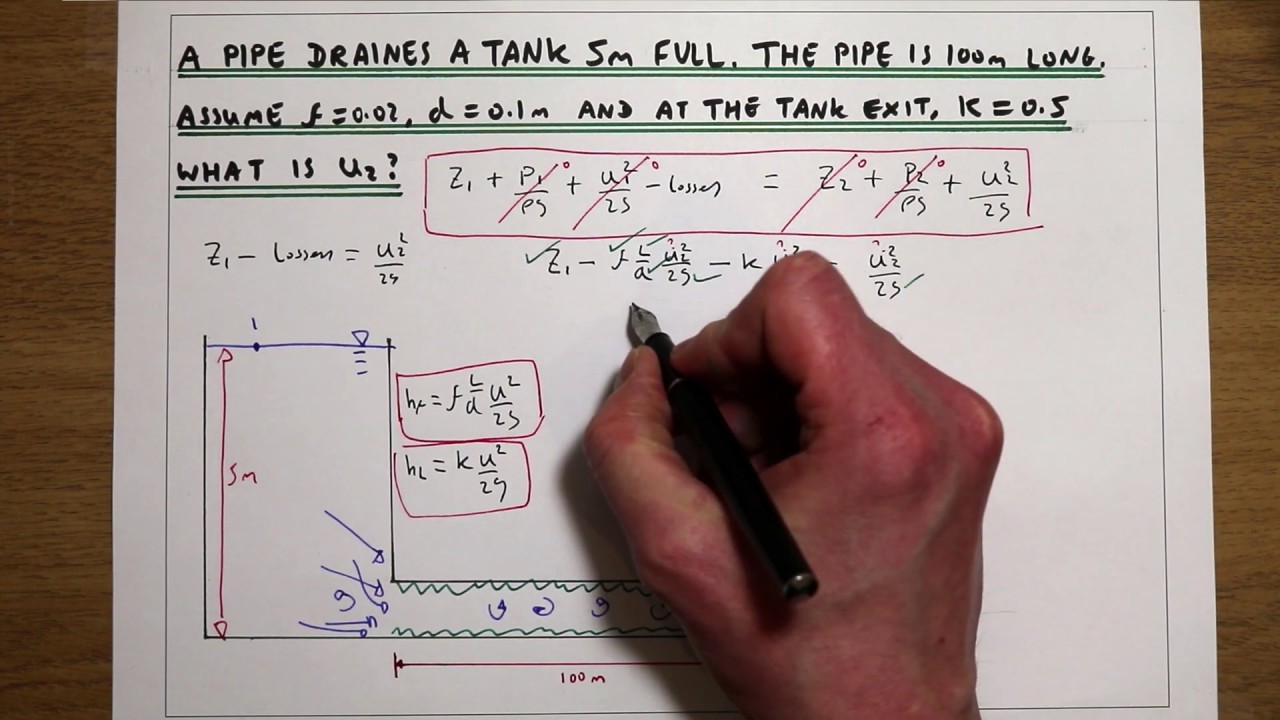 A PIPE DRAINES A TANK 5m FULL. THE PIPE IS 100m LONG.
ASSUME f=0.02, d=0.1m AND AT THE TANK EXIT, K=0.5
WHAT IS U₂?
Z₁ + P₁/ρg + u₁²/2g - losses = Z₂ + P₂/ρg + u₂²/2g
0 0 0 0
Z₁ - losses = u₂²/2g
Z₁ - f L/d u₂²/2g - k u₂²/2g
? ? ?
1
h_f = f L/d u²/2g
h_L = k u²/2g
5m
100m